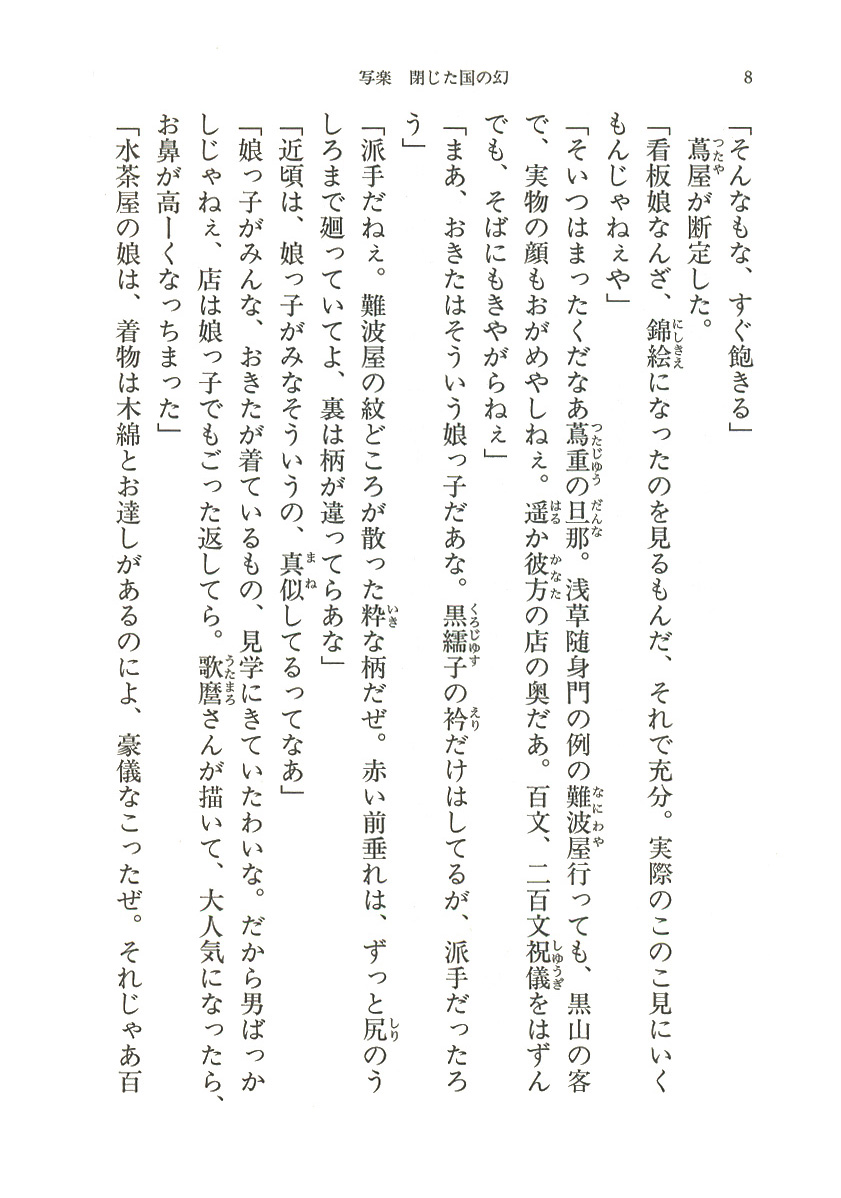 写楽　閉じた国の幻
8
「そんなもな、すぐ飽きる」
蔦屋が断定した。
「看板娘なんざ、錦絵になったのを見るもんだ、それで充分。実際のこのこ見にいく
もんじゃねぇや」
「そいつはまったくだなあ蔦重の旦那。浅草随身門の例の難波屋行っても、黒山の客
で、実物の顔もおがめやしねぇ。遥か彼方の店の奥だあ。百文、二百文祝儀をはずん
でも、そばにもきやがらねぇ」
「まあ、おきたはそういう娘っ子だあな。黒繻子の衿だけはしてるが、派手だったろ
う」
「派手だねぇ。難波屋の紋どころが散った粋な柄だぜ。赤い前垂れは、ずっと尻のう
しろまで廻っていてよ、裏は柄が違ってらあな」
「近頃は、娘っ子がみなそういうの、真似してるってなあ」
「娘っ子がみんな、おきたが着ているもの、見学にきていたわいな。だから男ばっか
しじゃねぇ、店は娘っ子でもごった返してら。歌麿さんが描いて、大人気になったら、
お鼻が高ーくなっちまった」
「水茶屋の娘は、着物は木綿とお達しがあるのによ、豪儀なこったぜ。それじゃあ百